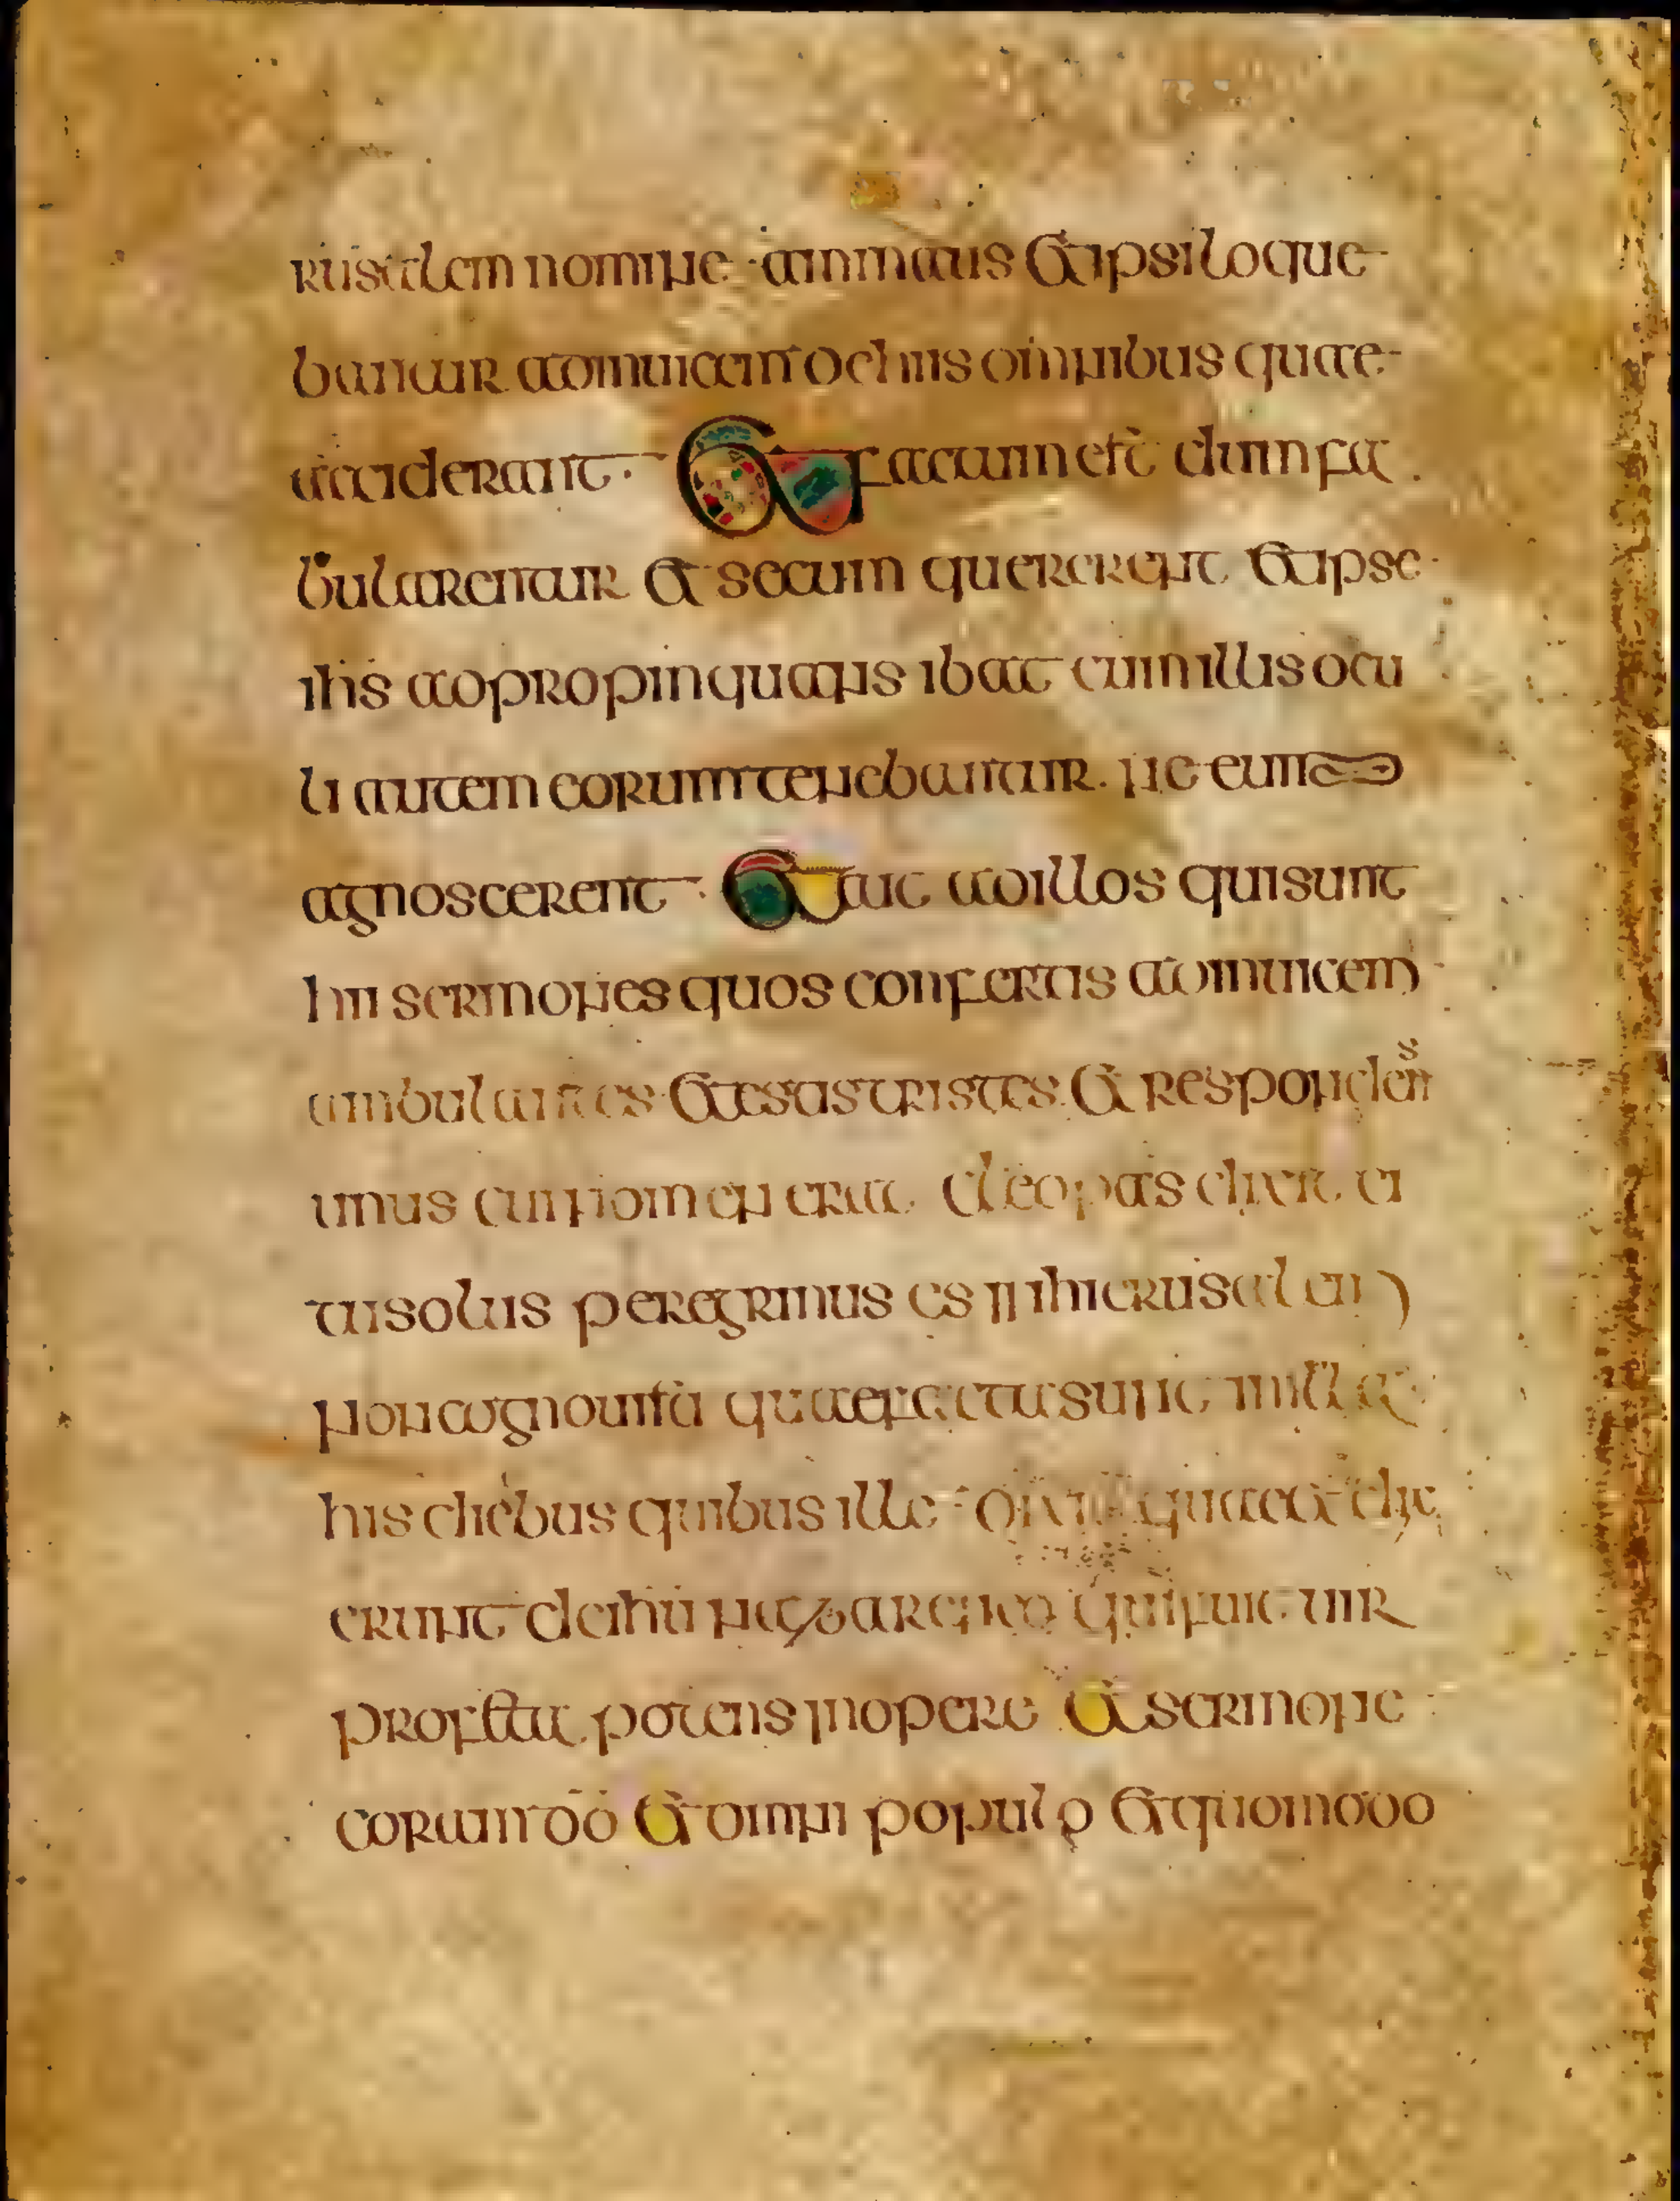 rusalem nomine ammaus Et ipsi loque
bantur adinuicem dehiis omnibus quae
acciderant · Et factum est dum fa
bularentur et secum quererent Et ipse
ihs adpropinquans ibat cum illis ocu
li autem eorum tenebantur. ne eum
agnoscerent · Et ait ad illos qui sunt
hii sermones quos confertis adinuicem
ambulantes Et estis tristes. Et respondens
unus cui nomen erat. Cleopas dixit ei
tu solus peregrinus es in hierusalem
non cognouisti quae facta sunt in illa
his diebus quibus ille dixit quae et dix
erunt de ihu nazareno qui fuit uir
profeta potens in opere et sermone
coram do et omni populo Et quomodo